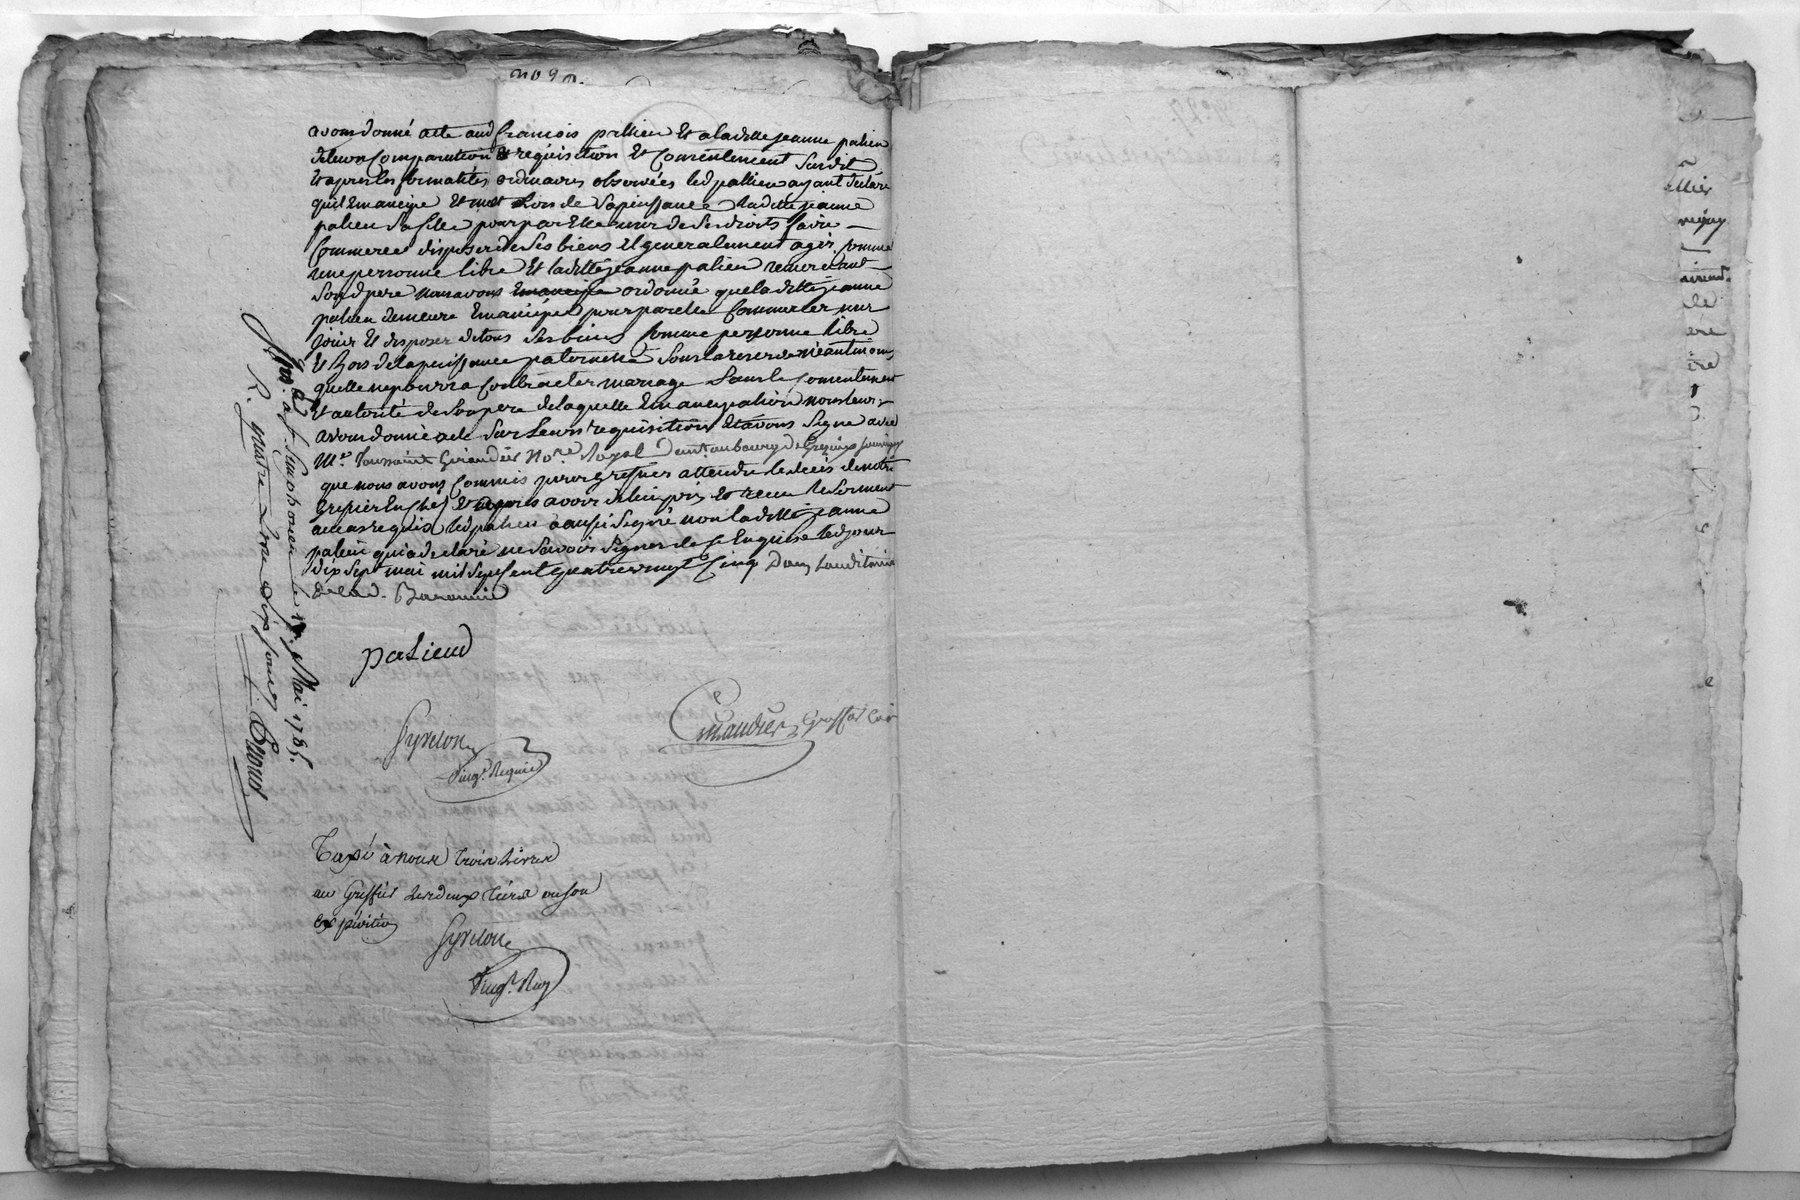 avons donné acte aud françois pallien et a laditte jeanne palien
de leur Comparution et requisition et Consentement Susdit
et apres les formalités ordinaires observées led pallien ayant declaré
quil Emancipe et met hors de Sa puissance laditte jeanne
palien Sa fille pour par Elle user de Ses droits faire
Commerce disposer de Ses biens et generalement agir Comme
une personne libre et laditte jeanne palien remerciant
Sond pere nous avons Emancipé ordonné que laditte jeanne
palien demeure Emancipée pour par elle Commercer user
jouir et disposer de tous Ses biens Comme personne libre
et hors de la puissance paternelle Sous la reserve neantmoins
quelle ne pourra Contracter mariage Sans le Consentement
et autorité de Son pere de laquelle Emancipation nous leur
avons donné acte Sur Leurs requisitions et avons Signé avec
Me Toussaint Giraudier Nore Royal
que nous avons Commis pour greffier attendu le deces de notre
greffier En chef et apres avoir de lui pris et recu le Serment
au cas requis led palien a aussi Signé non laditte jeanne
palien qui a declaré ne Savoir Signer de ce Enquise led jour
dix Sept mai mil Sept Cent quatre vingt Cinq Dans Lauditoire
de lad. Baronnie
paLien
Giraudier Greffier Com
Taxé à nous Trois Livres
au Greffier Les deux tiers ou son
expédition
le 17. Mai 1785.
R. quatre Livres dix sous